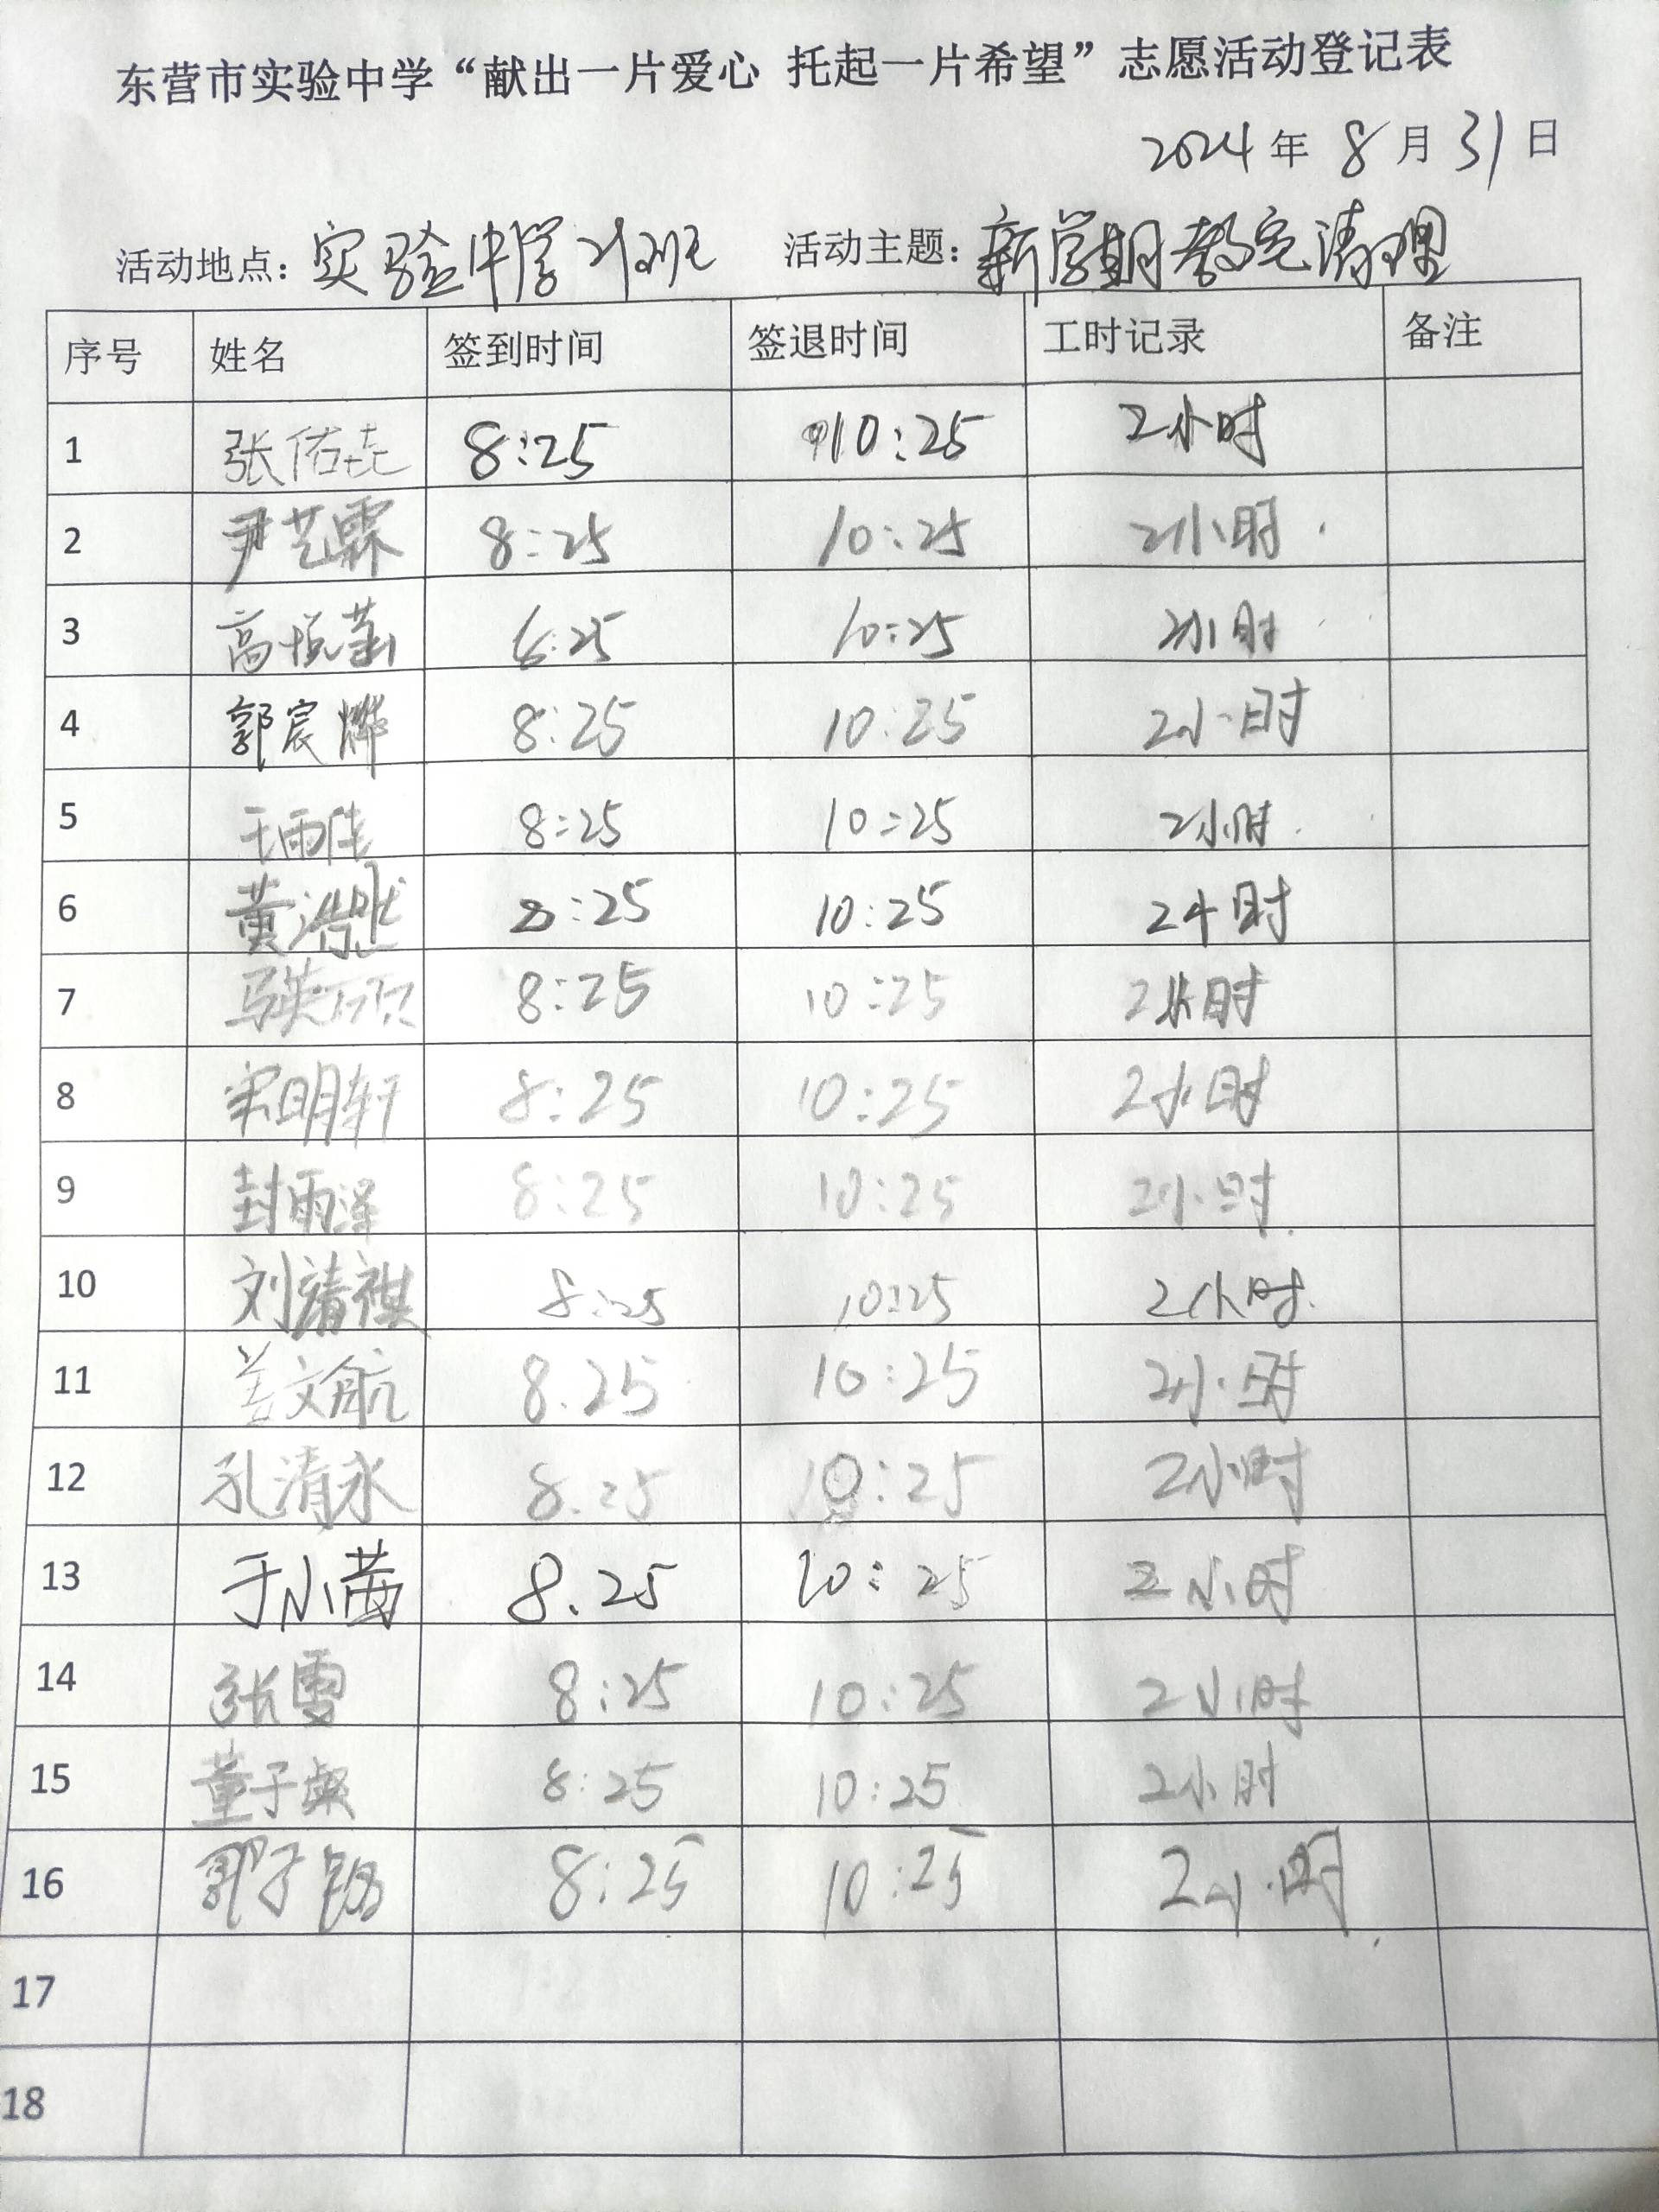 东营市实验中学“献出一片爱心 托起一片希望”志愿活动登记表
2024年 8月 31日
活动地点：实验中学21班 活动主题：新学期教室清理
序号 姓名 签到时间 签退时间 工时记录 备注
1 张佑垚 8:25 10:25 2小时
2 尹艺霖 8:25 10:25 2小时
3 高悦菡 8:25 10:25 2小时
4 郭宸烨 8:25 10:25 2小时
5 王雨佳 8:25 10:25 2小时
6 黄浩然 8:25 10:25 2小时
7 马英硕 8:25 10:25 2小时
8 宋明轩 8:25 10:25 2小时
9 封雨泽 8:25 10:25 2小时
10 刘靖祺 8:25 10:25 2小时
11 姜文航 8.25 10:25 2小时
12 孔清永 8.25 10:25 2小时
13 于小茜 8.25 10:25 2小时
14 张雯 8:25 10:25 2小时
15 董子 8:25 10:25 2小时
16 郭子 8:25 10:25 2小时
17
18